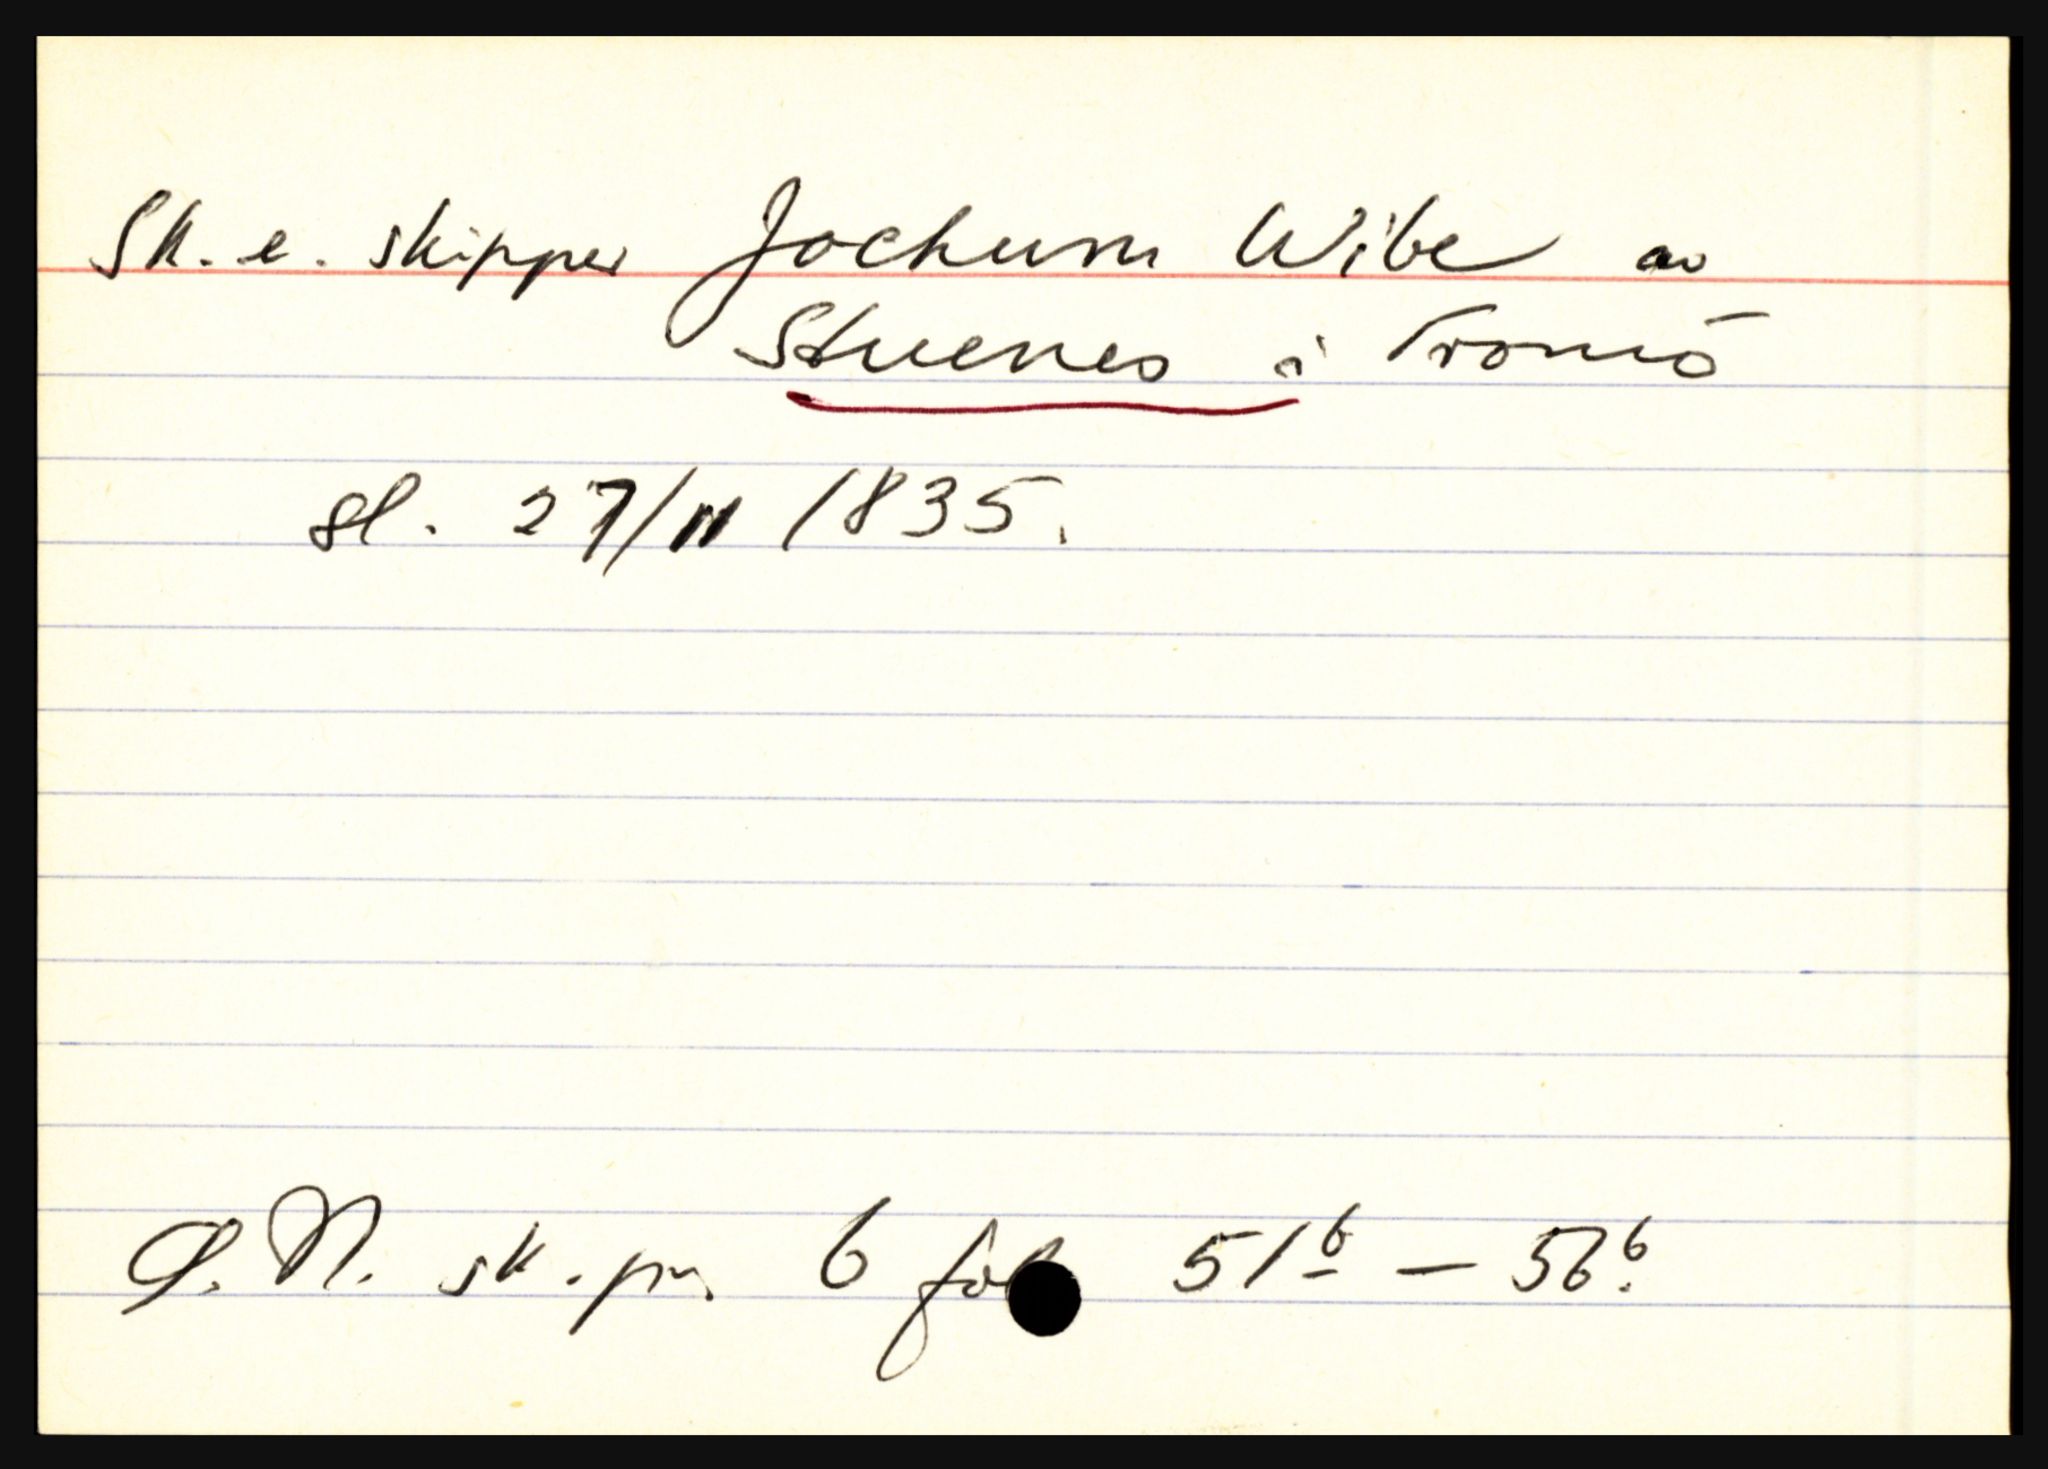 Sk. e. skipper Jochum Wibe av
Stuenes i Tromö
sl. 27/11 1835.
Ø. N. sk.pr. 6 fol 51b — 56b.